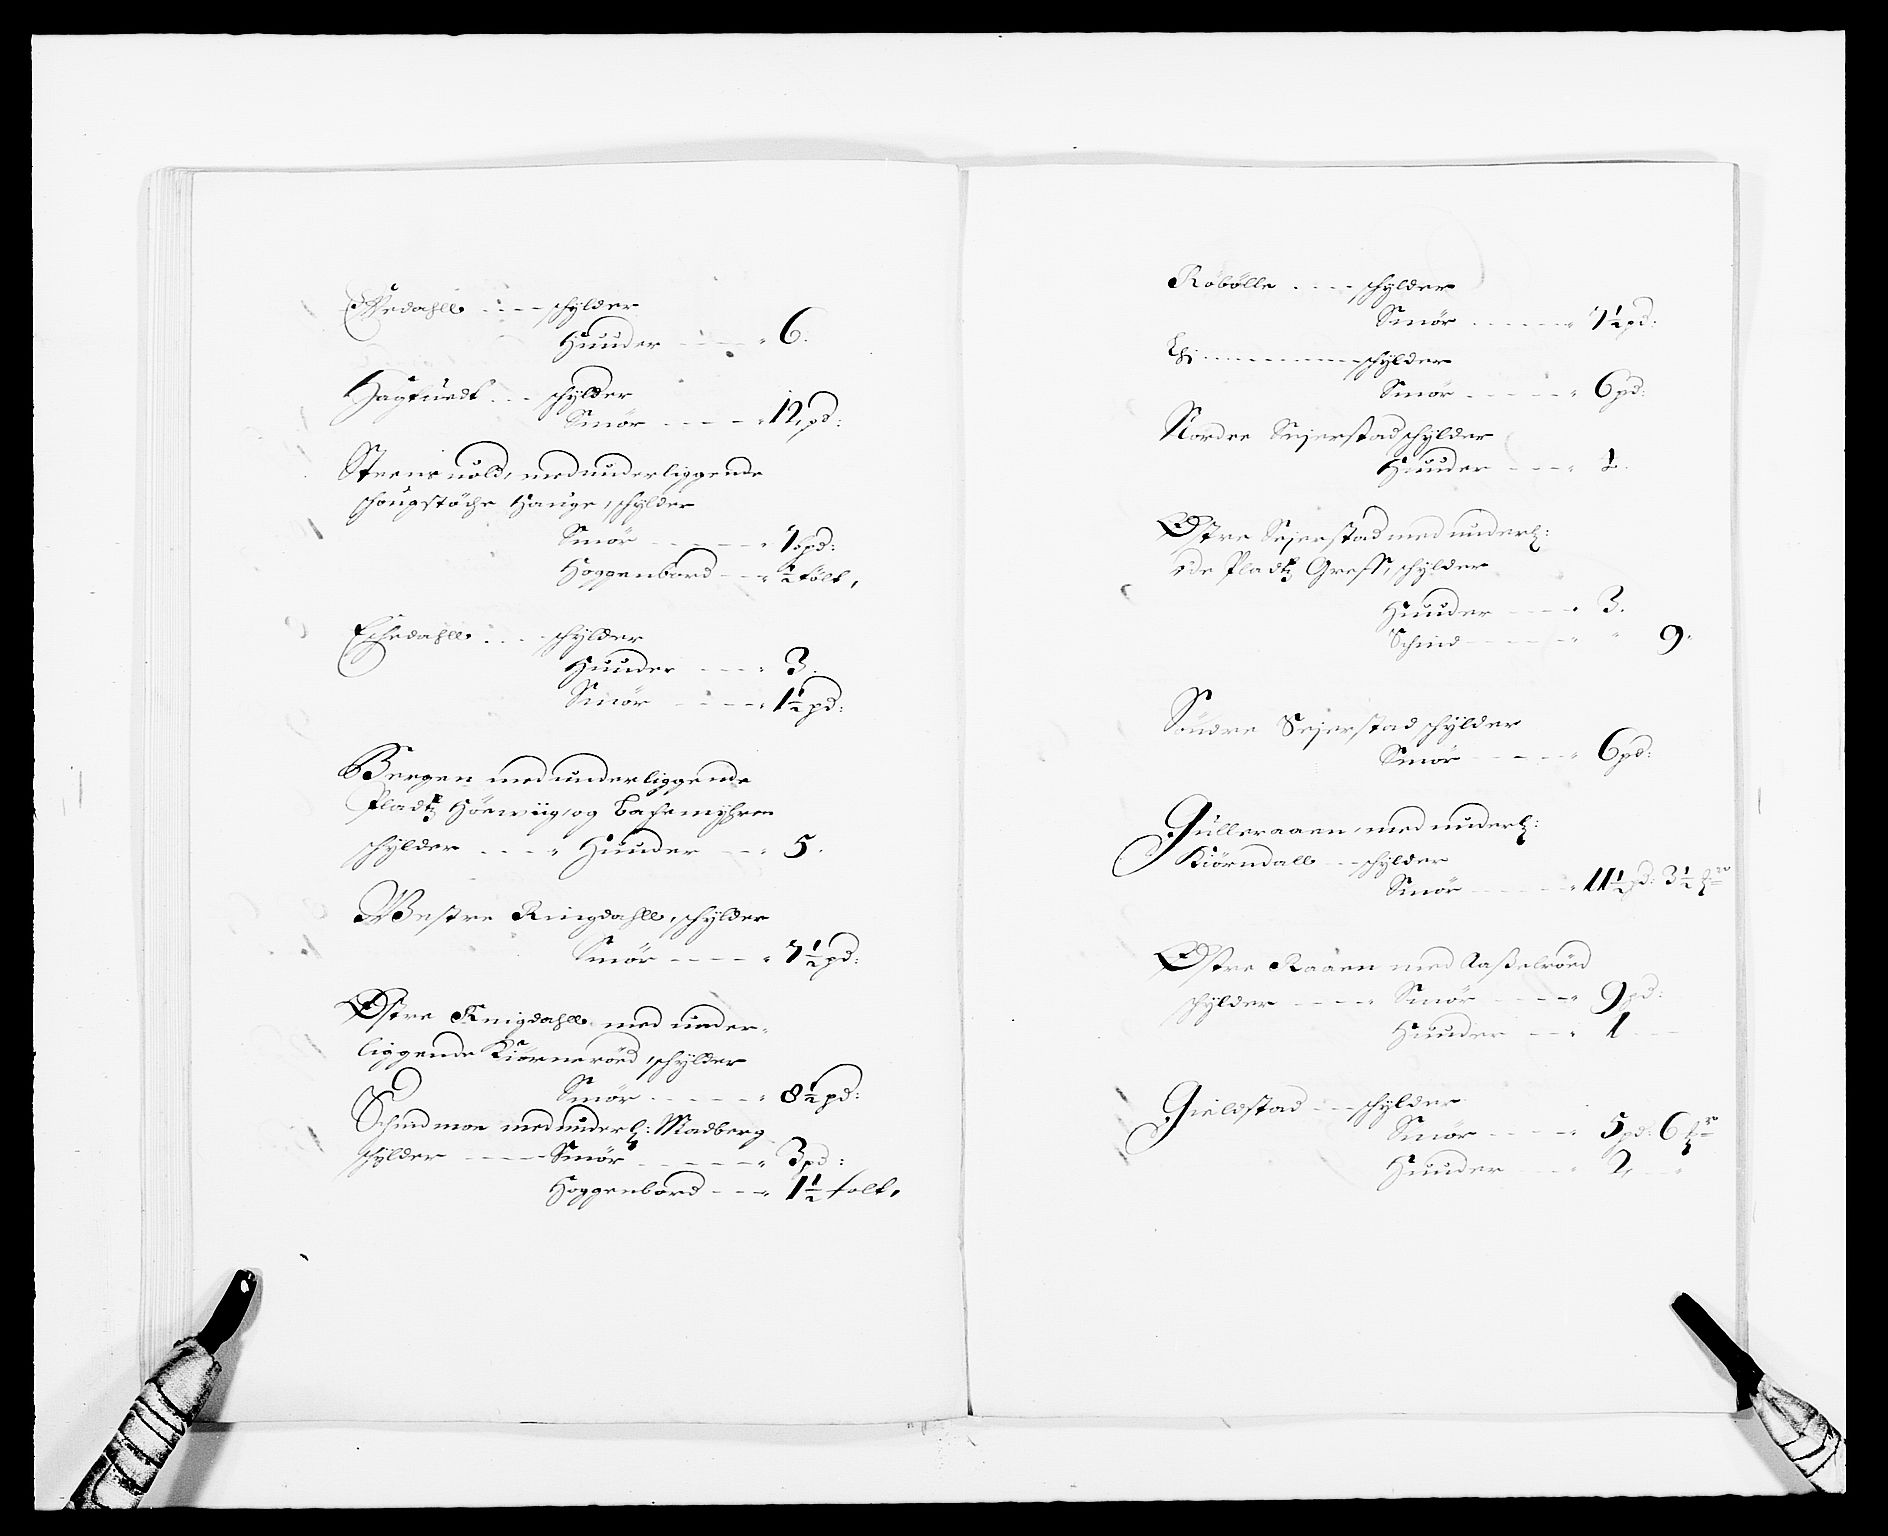 schylder
Huuder - - - - 6.
Hagtuedt - - - schylder
Smör - - - - 12 pd:
Steens uold, med underliggende
schougstöche Hauge, schylder
Smör - - - - pd:
Hoggenbord - - - ½ tölt,
Echedahll - - - schylder
Huuder - - - 3.
Smör - - - - 1½ pd:
Bergen med underliggende
Pladtz Höewiig, og
schylder - - - Huuder - - 5.
Westre Ringdahll, schylder
Smör - - - - 7½ pd:
Östre Ringdahll med under-
liggende Kiörneröed, schylder
Smör - - - - 8½ pd:
Schindmoe med underl: Madberg
schylder - - - Smör - - - - 3 pd:
Hoggenbord - - - 1½ tolt,
Röbölle - - - - schylder
Smör - - - - 7½ pd:
Lhi - - - - schylder
Smör - - - - 6 pd:
Nordre Sejerstad schylder
Huuder - - - 1.
Östre Sejerstad med underl:
öde Pladtz Greff, schylder
Huuder - - - 3.
Schind - - - - " 9.
Söndre Sejerstad schylder
Smör - - - - 6 pd:
Gulleraaen, med underl:
Kiörndall - - schylder
Smör - - - - 11½ pd: 3½
Östre Raaen med Aasselröed
schylder - - - - Smör - - - - 9 pd:
Huuder - - - 1
Gieldstad - - - schylder
Smör - - - - 5 pd: 6
Huuder - - - 2